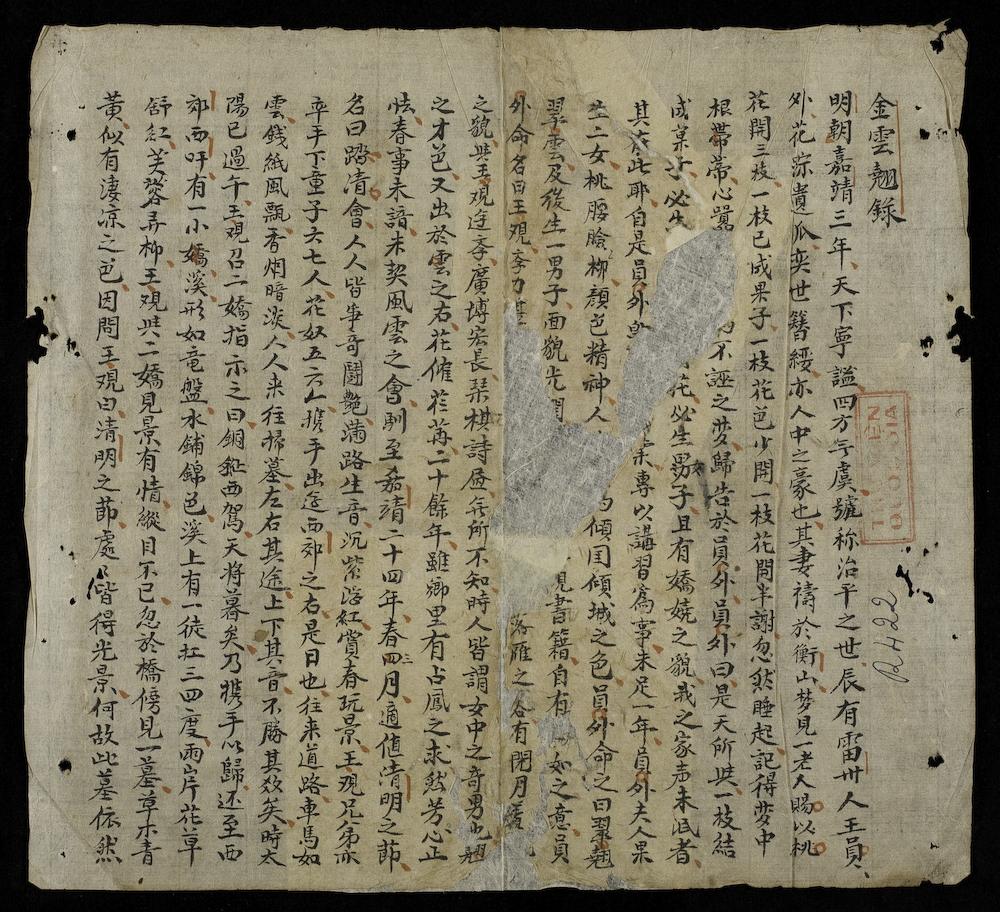 金雲翹錄
明朝嘉靖三年天下寧謐四方無虞號称治平之世辰有雷卅人王員
外花踪遺瓜奕世簪綬亦人中之豪也其妻禱於衡山梦見一老人賜以桃
花開三枝一枝已成果子一枝花色少開一枝花開半謝忽然睡起記得夢中
根帶帶心駡 不誣之梦歸告於員外員外曰是天所與一枝結
成菓子必生 花必生男子且有嬌嬈之貌我之家声未泯者
其在此耶自是員外 專以講習為事未足一年員外夫人果
生二女桃腮臉柳顏色精神人 的傾国傾城之色員外命之曰翠翹
翠雲及後生一男子面貌光 見書籍自有 如之意員
外命名曰王覌季力 落雁之容有閉月羞
之貌與王覌逹季廣博宏長琴棋詩 無所不知時人皆謂女中之奇男也翹
之才色又出於雲之右花催荏苒二十餘年雖鄉里有占鳳之求然芳心正
怯春事未諳未契風雲之會馴至嘉靖二十四年春三月適值清明之節
名曰踏清會人人皆爭奇鬪艷滿路生音沉紫浮紅賞春玩景王覌兄弟亦
率手下童子六七人花奴五六人携手出遊西郊之右是日也往来道路車馬如
雲錢紙風飄香烟暗淡人人来往掃墓左右其途上下其音不勝其效矣時太
陽已過午王覌召二嬌指示之曰銅鉦西駕天将暮矣乃携手以歸还至西
郊西吁有一小嬌溪形如竜盤水鋪錦色溪上有一徒杠三四度兩岸花草
舒紅芙蓉弄柳王覌與二嬌見景有情縱目不已忽於橋傍見一墓草木青
黃似有凄凉之色因問王覌曰清明之節處々皆得光景何故此墓依然
R.H22